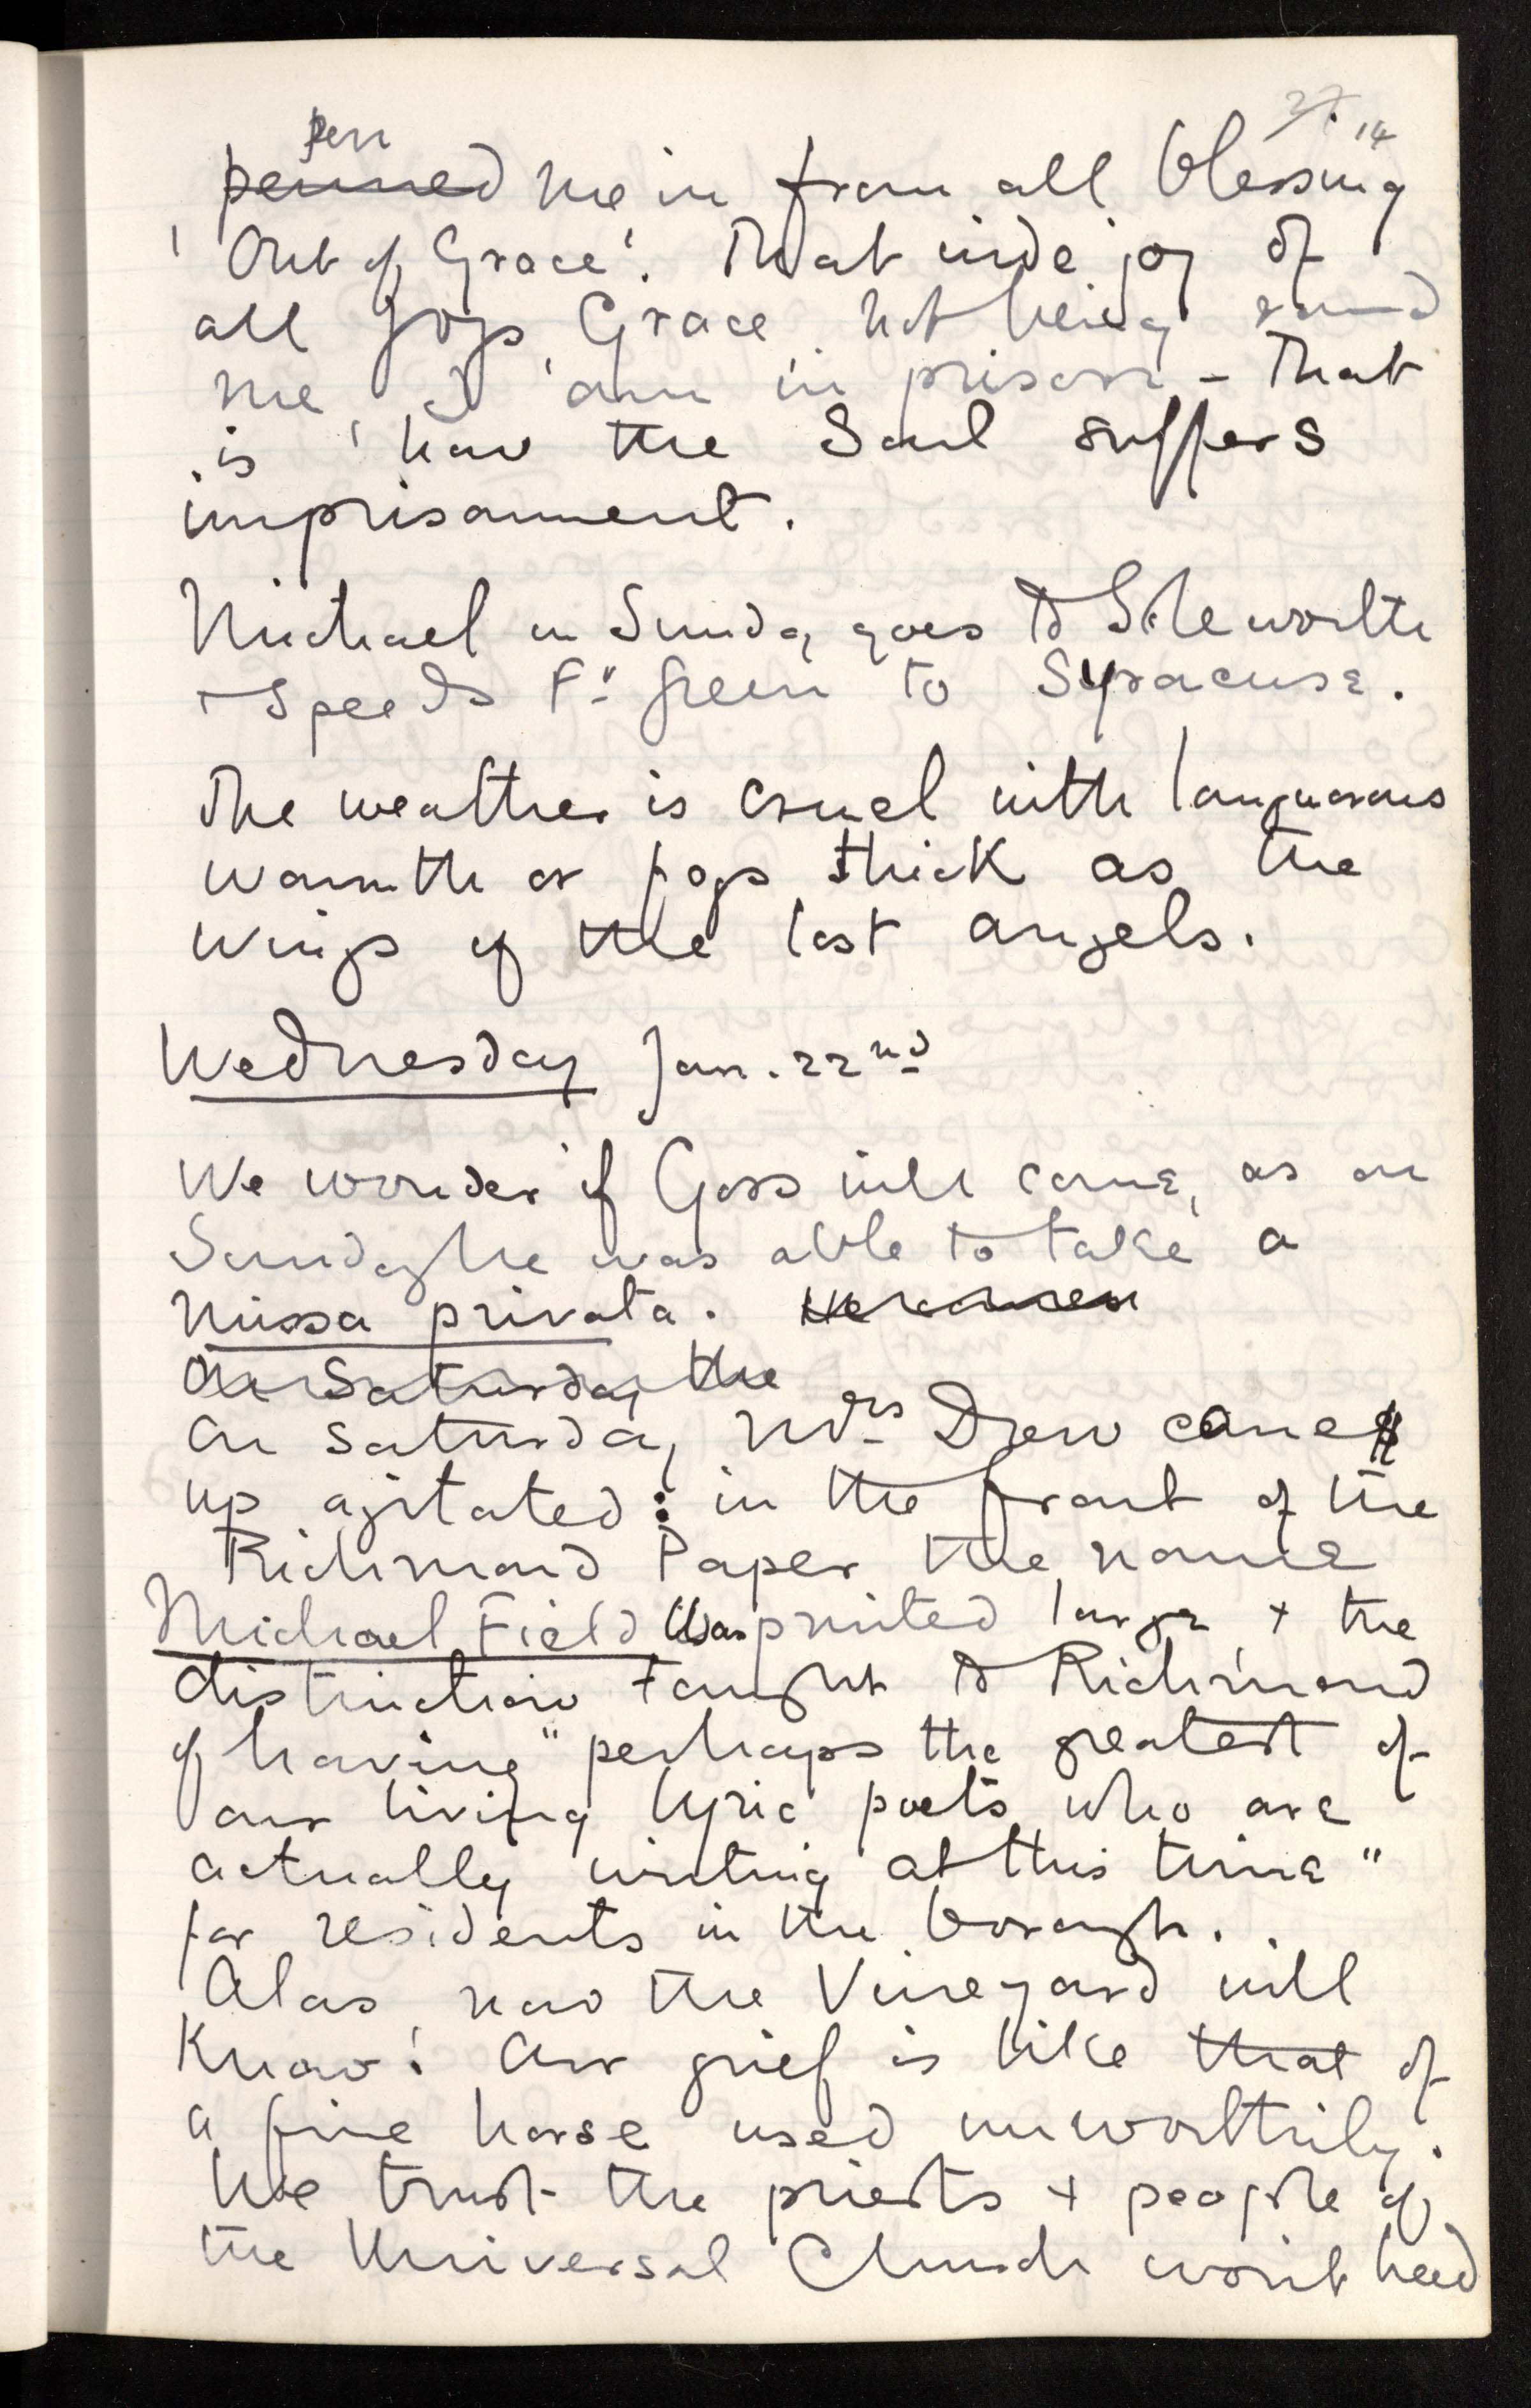 27. 14
pen
penned me in from all blessing
'Out of Grace'. That wide joy of
all joys, Grace, not being round
me, I am in prison - That
is how the Soul suffers
imprisonment.
Michael on Sunday goes to Isleworth
+ speeds Fr Green to Syracuse.
The weather is cruel with languorous
warmth or fogs thick as the
wings of the lost angels.
Wednesday Jan. 22nd
We wonder if Goss will come, as on
Sunday he was able to take a
missa privata.
On Saturday the
On Saturday Mrs Drew comes
up agitated: in the front of the
Richmond Paper the name
Michael Field was printed large + the
distinction taught to Richmond
of having "perhaps the greatest of
our living lyric poets who are
actually writing at this time"
for residents in the borough.
Alas, now the Vineyard will
know! Our grief is like that of
a fine horse used unworthily.
We trust the priests + people of
the Universal Church won't heed